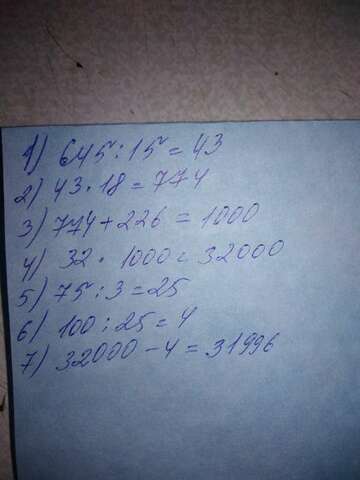 1) 645 : 15 = 43
2) 43 · 18 = 774
3) 774 + 226 = 1000
4) 32 · 1000 = 32000
5) 75 : 3 = 25
6) 100 : 25 = 4
7) 32000 - 4 = 31996